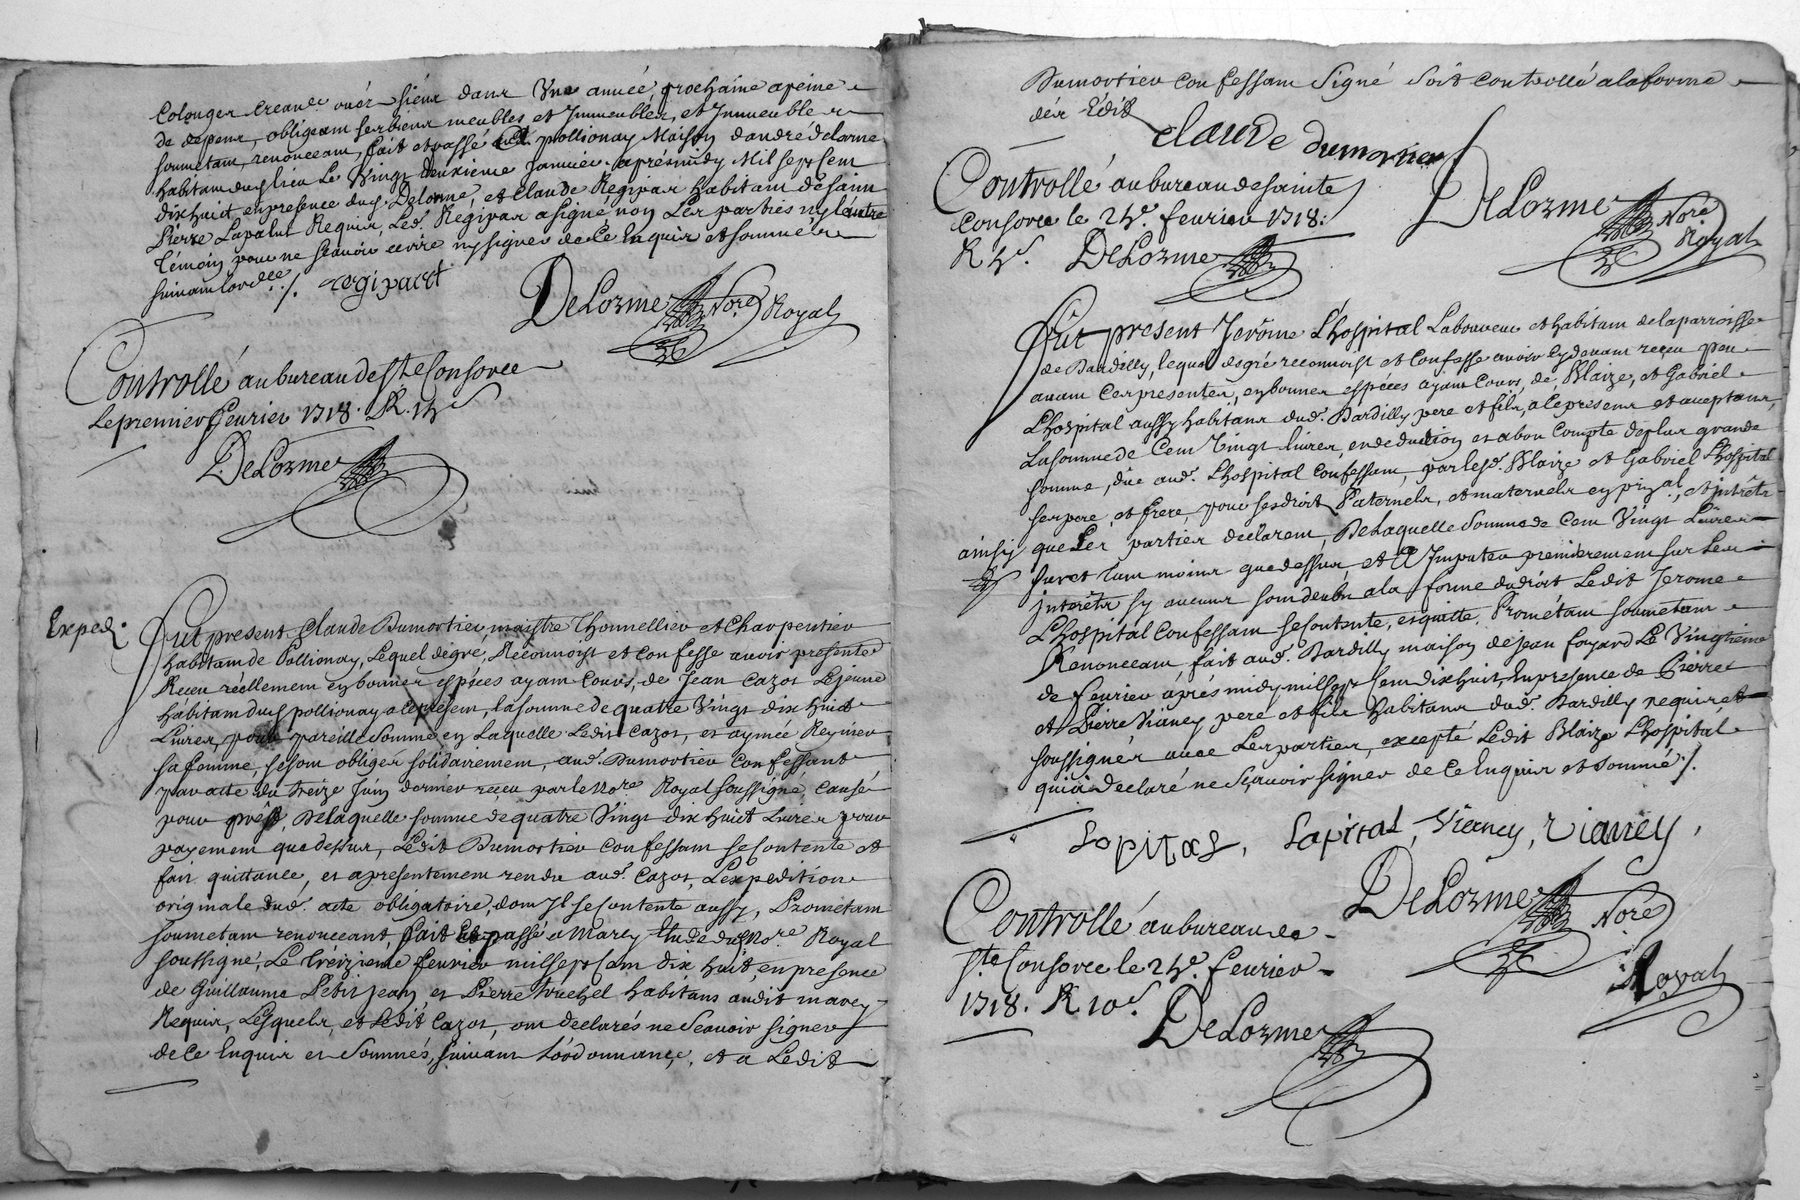 Colonger Creanr. ouér sieur dans Une année prochaine apeine
de depens, obligeam ses biens meubles et Immeubles, et Immeubles
soumetam, renonceam, fait et passé aud. pollionay Maison dandré delorme
habitam dud. lieu Le Vingt deuxieme Janvier aprésmidy Mil sept cem
dix huict, en presence dud. Delorme, et Claude Regipas habitam de saint
Pierre Lapalut Requis, Led. Regipas a signé non Les parties ny Lautre
témoin pour ne scavoir ecrire ny signer de ce Enquis et sommés
suivam lordce. /. regipact
DeLorme Nore. Royal
Controllé au bureau de Ste Consorce
Le premier fevrier 1718. R. 12s
DeLorme
Exped.
fut present Claude Dumortier, maistre thonnellier et Charpentier
habitam de Pollionay, Lequel de gre, Reconnoist et Confesse avoir presente.
Receu réellemem en bonnes espéces ayam Cours, de Jean Cazot Lejeune
habitam dud. pollionay a ce presem, la somme de quatre Vingt dix huict
Livres, pour pareille somme en Laquelle Ledit Cazot, et aymée Reynier
sa femme, se som obliger solidairemem, aud. Dumortier Confessant
par acte du treize Juin dernier receu par le Nore. Royal soussigné, Causé
pour prést, De laquelle somme de quatre Vingt dix huict Livres pour
payemem que dessus, Ledit Dumortier Confessam se Contente et
fait quittance, et a presentemem rendu aud. Cazot, L'expedition
originale dud. acte obligatoire, dom Il se Contente aussy, Prométam
soumetam renonceant, fait et passé a Marcy Etude dud. Nore. Royal
soussigne, Le treizieme fevrier mil sept Cem dix huit, en presence
de Guillaume Petit jean, et Pierre truchet habitans audit marcy
Requis, Lesquels, et Ledit Cazot, om declarés ne Scavoir signer
de ce Enquis et Sommés, suivam Loodonnance, et a Ledit
Dumortier Confessam Signé Soit Controllé a la forme
des Edit
Claude dumortier
DeLorme Nore Royal
Controllé au bureau de sainte
Consorce le 24e. fevrier 1718.
R 4s. DeLorme
fut present Jerôme L'hospital Laboureur et habitam de la parroisse
de Dardilly, lequel de gré reconnoist et Confesse avoir Cy devam reçeu peu
avam Ces presentes, en bonnes espéces ayam Cours, de Blaize, et Gabriel
L'hospital aussy habitans dud. Dardilly pere et fils, a Ce presens et acceptans,
La somme de Cem Vingt livres, en deduction et a bon Compte de plus grande
somme, dûe aud. L'hospital Confessam, par lesd. Blaize et Gabriel L'hospital
ses pere, et frere, pour ses droit Paternels, et maternels en pr̃i̇pal, et intrêts
ainsy que Les parties declarem, De Laquelle Somme de Cem Vingt Livres
furet tam moins que dessus, et A Imputer premierement sur Les
intrêts sy aucuns som deubs a la forme du droit Ledit Jerome
L'hospital Confessam se Contente, et quitte, Prométam soumetam
Renonceam, fait aud. Dardilly maison de Jean foyard Le Vingtieme
de fevrier aprés midy mil sept Cem dix huit, En presence de Pierre
et Pierre Vianey pere et fils habitans dud. Dardilly requis et
soussignés avec Les parties, excepté Ledit Blaize L'hospital
qui a declaré ne Scavoir signer de Ce Enquis et sommé /.
Lopital, Lapital, Vianey, Vianey,
DeLorme Nore Royal
Controllé au bureau de
Ste Consorce le 24e. fevrier
1718. R 10s. DeLorme